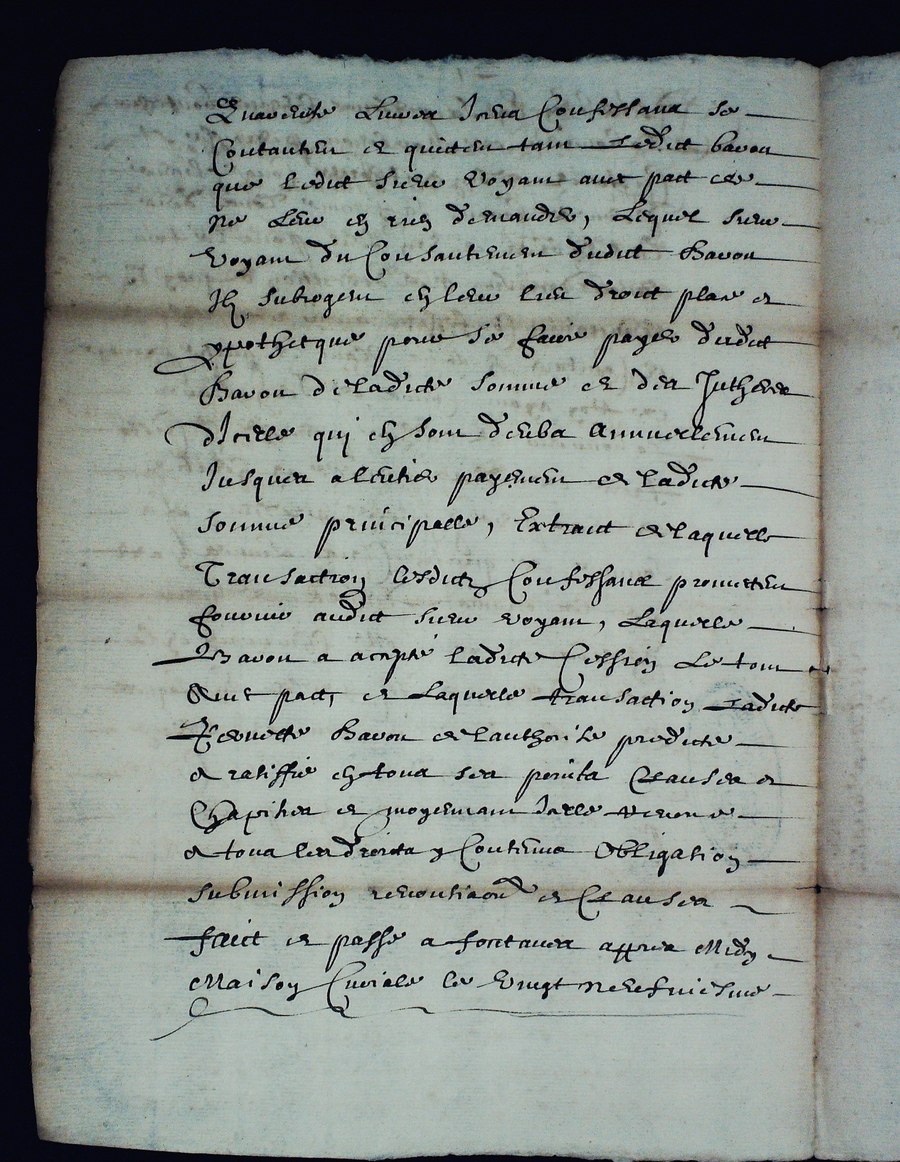 Quarente Livres Iceux Confessans se
Contanten et quitten tant Ledict bavou
que ledict sieur Voyant avec pact de
ne Leur en rien demander, Lequel sieur
Voyant du Consantement dudict Bavou
Ilz subrogent en leur lieu droict place et
ypothecque pour se faire payer dudict
Bavou de ladicte somme et des Intherez
dIcelle qui en sont deubs Annuellement
Jusques a lentier payement de ladicte
somme principalle, Extraict de laquelle
Transaction lesdictz Confessans prometten
fournir audict sieur voyant, Laquelle
Bavou a accepté ladicte Cession Le tout
Avec pact, et Laquelle transaction Ladicte
Bavou de lauthorite predicte
a ratiffié en tous ses points Clauses et
Chapitres et moyennant Icelle
a tous les droicts y Contenus Obligation
submission renontiaon et Clauses
faict et passé a fontanes appres Midy
Maison Curiale le vingt neufuiesme